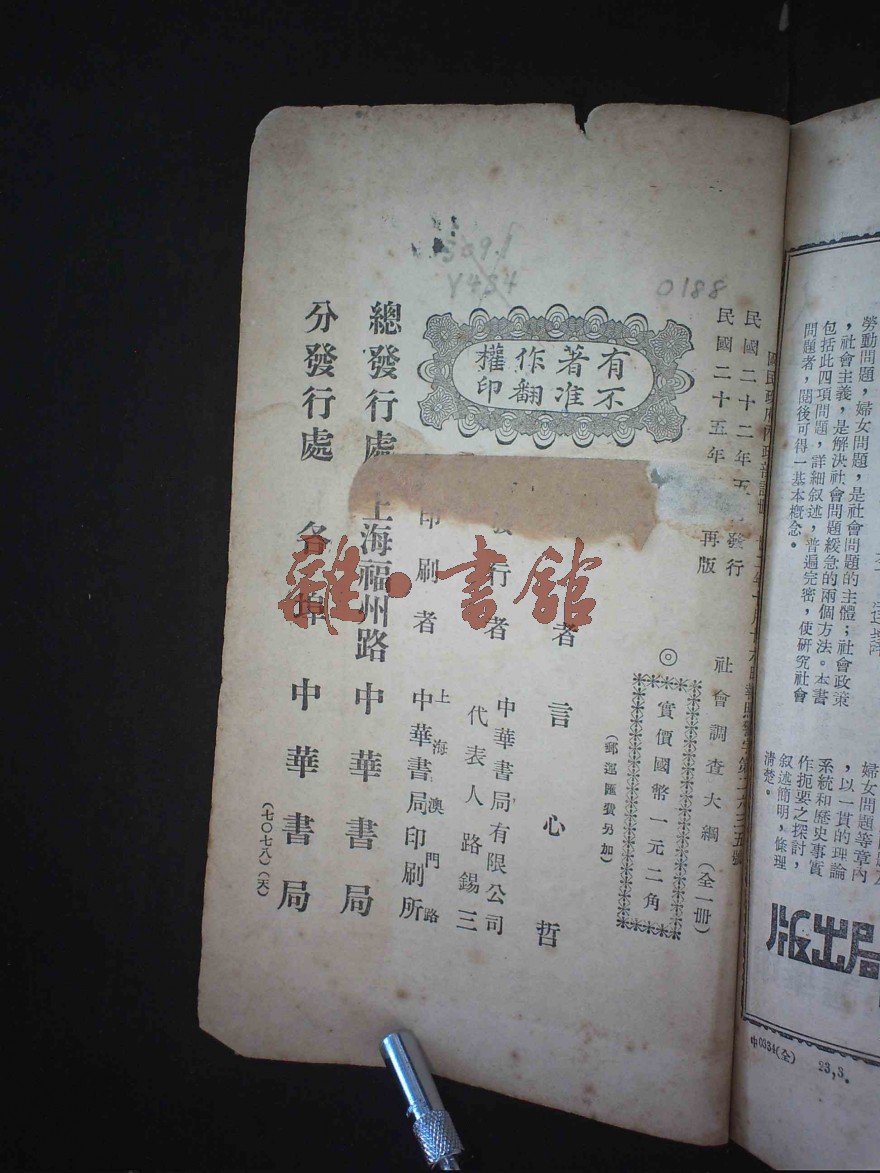 309.1
Y434
0188
民國二十二年五 發行
民國二十五年 再版
社會調查大綱(全一冊)
◎實價國幣一元二角
(郵運匯費另加)
有不
著准
作翻
權印
者 言心哲
發行者 中華書局有限公司
代表人路錫三
印刷者 上海澳門路
中華書局印刷所
總發行處 上海福州路 中華書局
分發行處 各埠 中華書局
(七〇七八)(天)
雜·書館
勞動問題,婦女問題,是社會問題的主體;社會政策
,社會主義,是解決社會問題緩急的兩個方法。本書
包括此四項問題,詳細叙述,普遍完密,使研究社會
問題者,閱後可得一基本概念。
婦女問題等章內
,以一貫的理論
系統和歷史事實
作扼要之探討,
叙述簡明,條理
清楚。
局出版
中0934(全) 23,3.